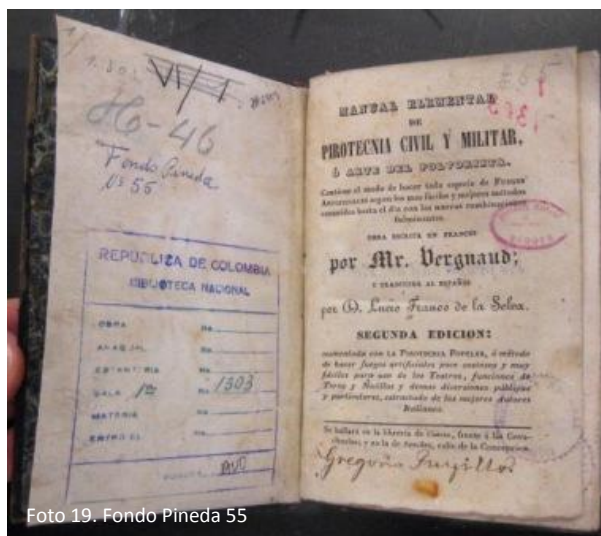 VI/1
H-46
Fondo Pineda
Nº 55
REPUBLICA DE COLOMBIA
BIBLIOTECA NACIONAL
OBRA No.
ANAQUEL No.
ESTANTERIA No.
SALA 1ª No. 1303
MATERIA No.
ENTRO EL No.
MANUAL ELEMENTAL
DE
PIROTECNIA CIVIL Y MILITAR,
Ó ARTE DEL POLVORISTA.
Contiene el modo de hacer toda especie de FUEGOS
ARTIFICIALES segun los mas fáciles y mejores métodos
conocidos hasta el dia con las nuevas combinaciones
fulminantes.
OBRA ESCRITA EN FRANCES
por Mr. Vergnaud;
Y TRADUCIDA AL ESPAÑOL
por D. Lucio Franco de la Selva.
SEGUNDA EDICION:
aumentada con LA PIROTECNIA POPULAR, ó método
de hacer fuegos artificiales poco costosos y muy
fáciles para uso de los Teatros, funciones de
Toros y Novillos y demas diversiones públicas
y particulares, estractado de los mejores Autores
Italianos.
Se hallará en la librería de Cuesta, frente á las Cova-
chuelas; y en la de Sanchez, calle de la Concepcion.
Gregorio
Foto 19. Fondo Pineda 55